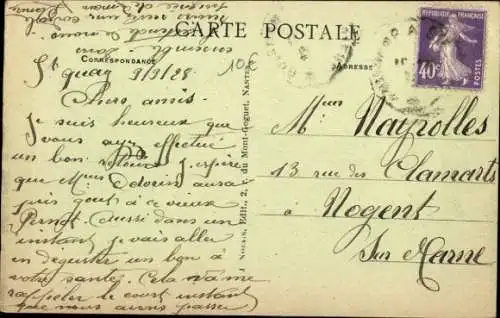 CARTE POSTALE
CORRESPONDANCE
ADRESSE
RÉPUBLIQUE FRANÇAISE
40c
POSTES
10f
St quay 9/9/28
Chers amis.
Je suis heureux que
vous ayez effectué
un bon retour j'espère
que Mme aura
pris goût à ce vieux
Pernot. Aussi dans un
instant je vais aller
en déguster un bon à
votre santé. Cela va me
rappeler le court instant
que nous avons passer
J. Nozais, Edit., 2, r. du Mont-Goguet, Nantes
Mme Nayrolles
13 rue des Clamarts
à Nogent
Sur Marne